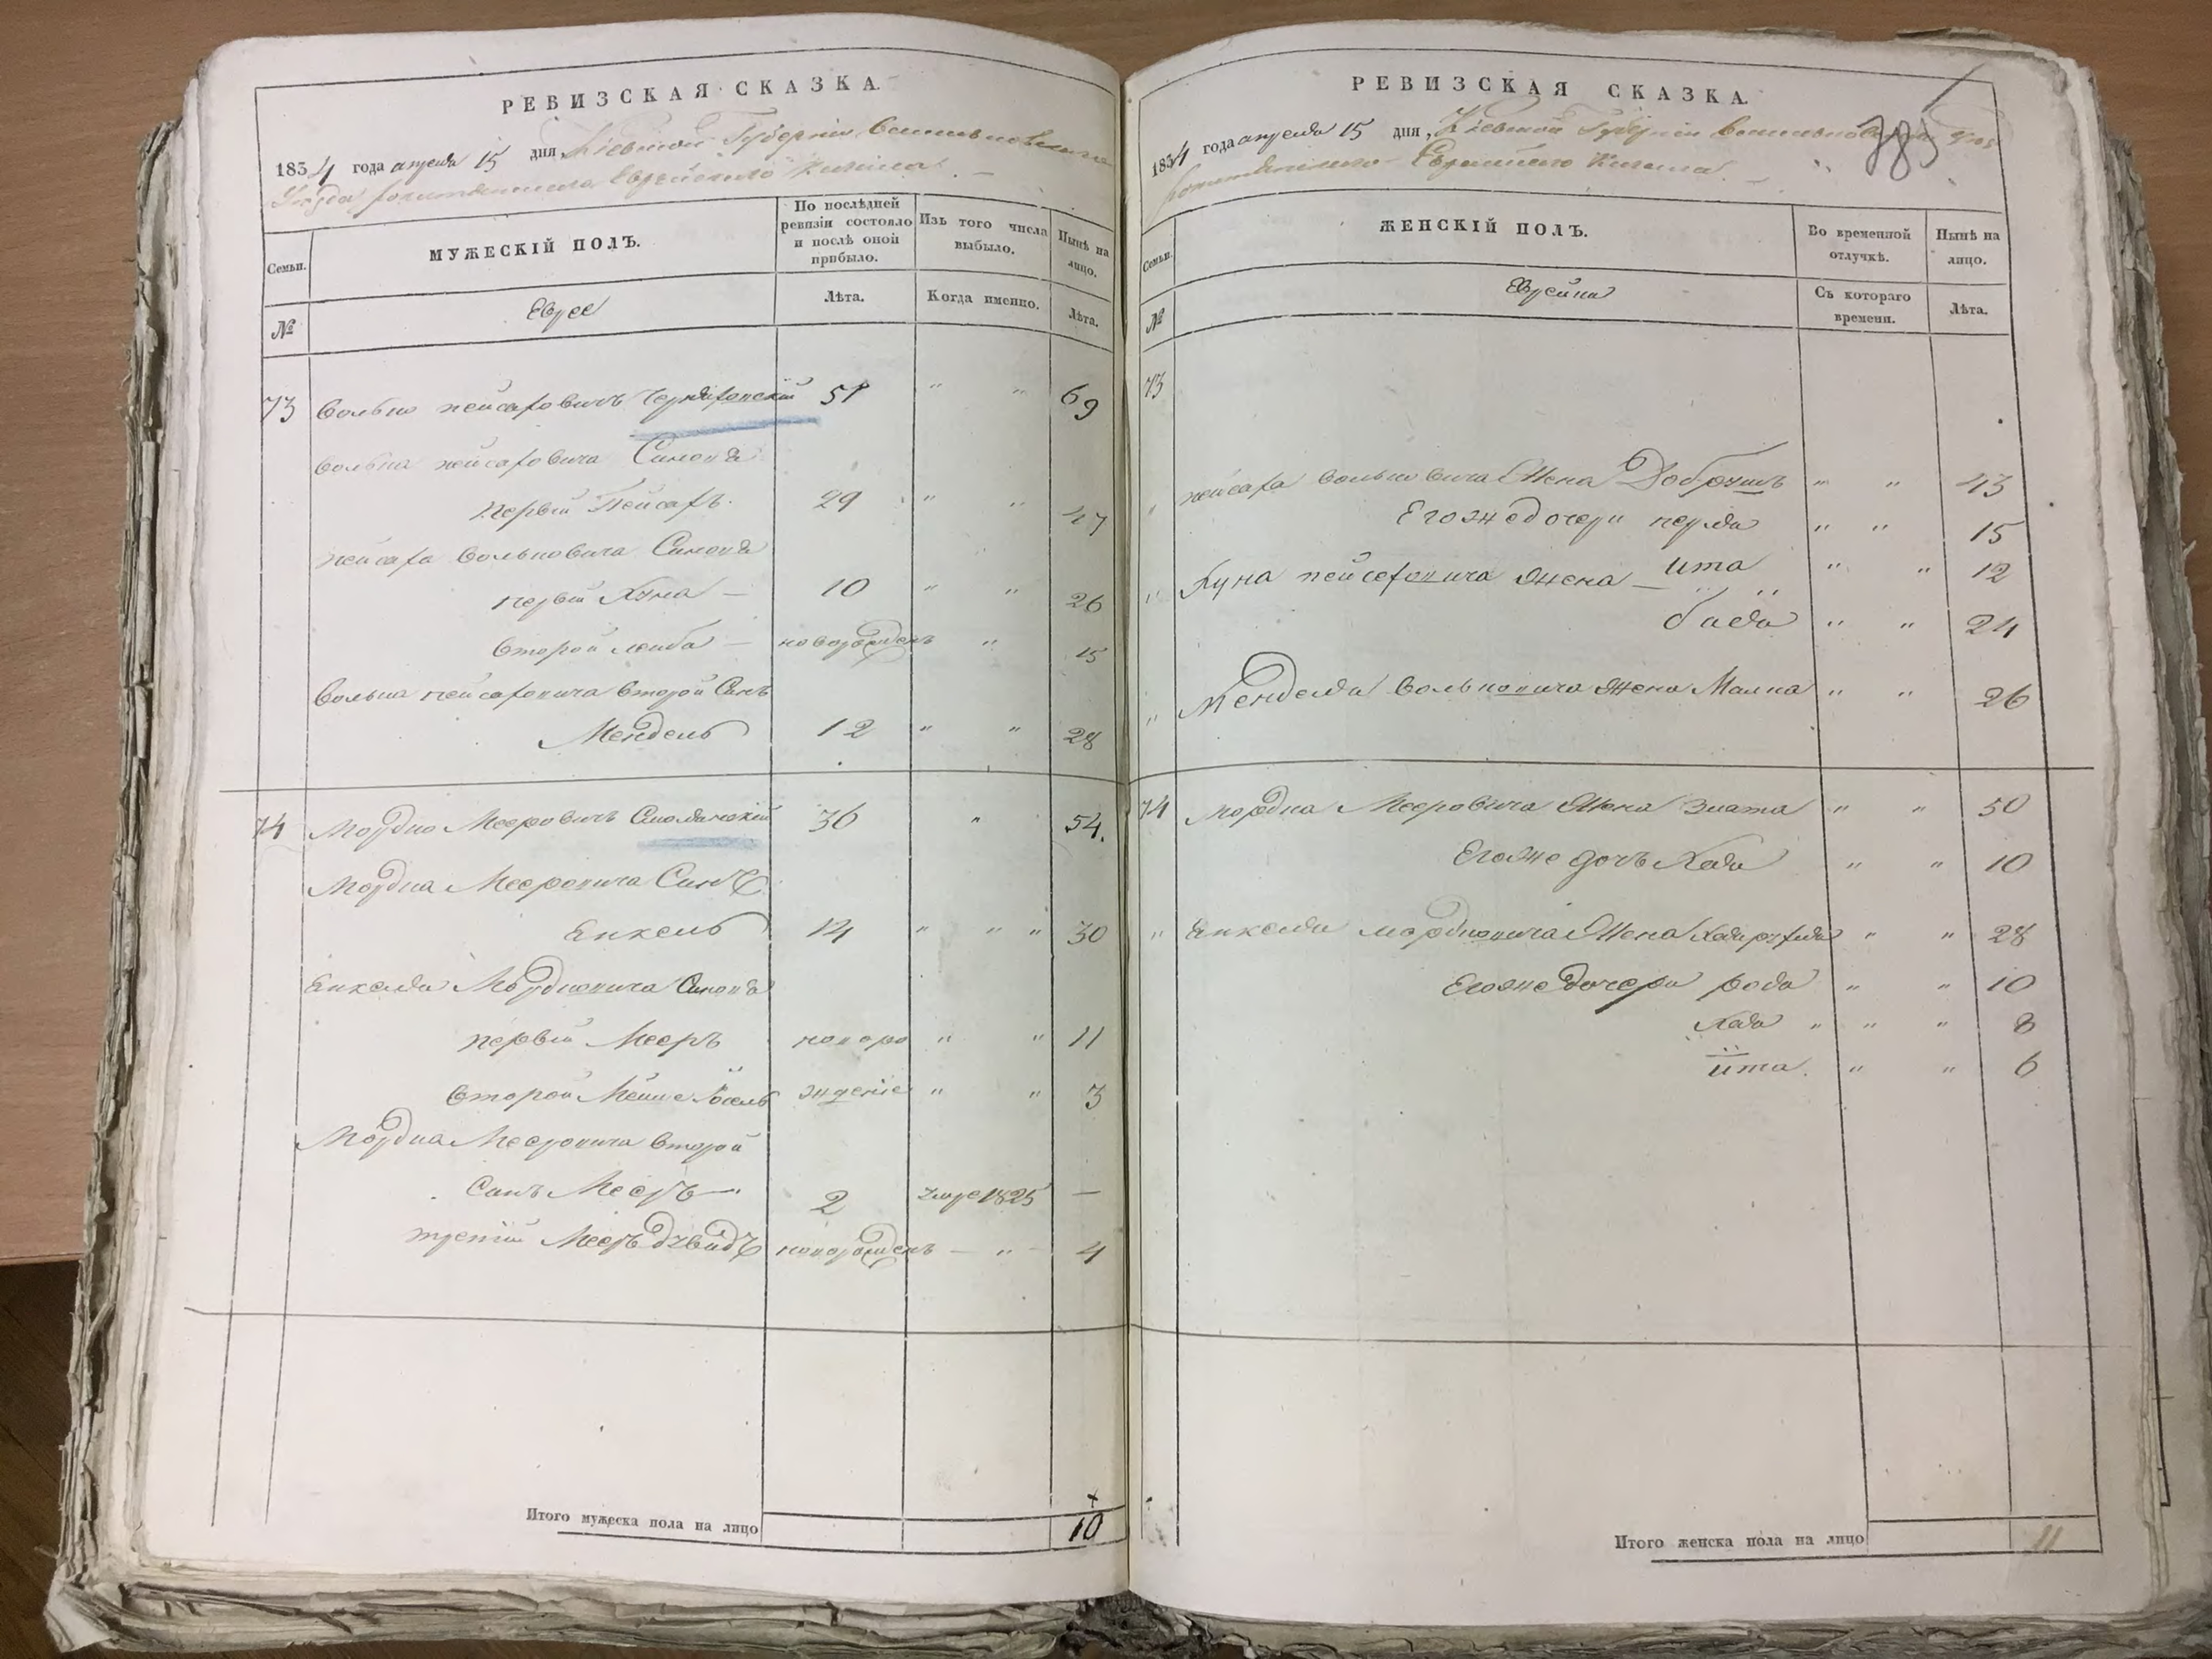 РЕВИЗСКАЯ СКАЗКА.
1834 года апреля 15 дня, Кіевской Губерніи Васильковскаго
Уѣзда Еврейскаго Кагала.
Семьи.
МУЖЕСКІЙ ПОЛЪ.
По послѣдней ревизіи состояло и послѣ оной прибыло.
Изъ того числа выбыло.
Нынѣ на лицо.
№
Еврее
Лѣта.
Когда именно.
Лѣта.
73 Волько Пейсаховичъ 51 " " 69
Волька Пейсаховича Синовя
Первый Пейсахъ. 29 " " 47
Пейсаха Вольковича Синовя
Первый Хуна — 10 " " 26
Второй Лейба — новорожденъ " 15
Волька Пейсаховича Второй Синъ
Мендель 12 " " 28
74 Мордко Мееровичъ Смолянскій 36 " 54.
Мордка Мееровича Синъ
Енкель 14 " " " 30
Енкеля Мордковича Синовя
Первый Мееръ новоро " " 11
Второй Мойше Іосель жденіе " " 3
Мордка Мееровича Второй
Синъ Мееръ — 2 1825 —
третій Мееръ Дувидъ новорожденъ — " — 4
Итого мужеска пола на лицо 10
РЕВИЗСКАЯ СКАЗКА.
385
1834 года апреля 15 дня, Кіевской Губерніи Васильковскаго
Еврейскаго Кагала.
Семьи.
ЖЕНСКІЙ ПОЛЪ.
Во временной отлучкѣ.
Нынѣ на лицо.
№
Еврейки
Съ котораго времени.
Лѣта.
73
Пейсаха Вольковича Жена Добрушъ " " 43
Его же дочери Перля " " 15
Ита " " 12
" Хуна Пейсаховича Жена —
Бася " " 24
" Менделя Вольковича Жена Малка " " 26
74 Мордка Мееровича Жена Злата " " 50
Его же дочь Хая " " 10
" Енкеля Мордковича Жена " " 28
Его же дочери " " 10
Хая " " " 8
Ита. " " 6
Итого женска пола на лицо 11